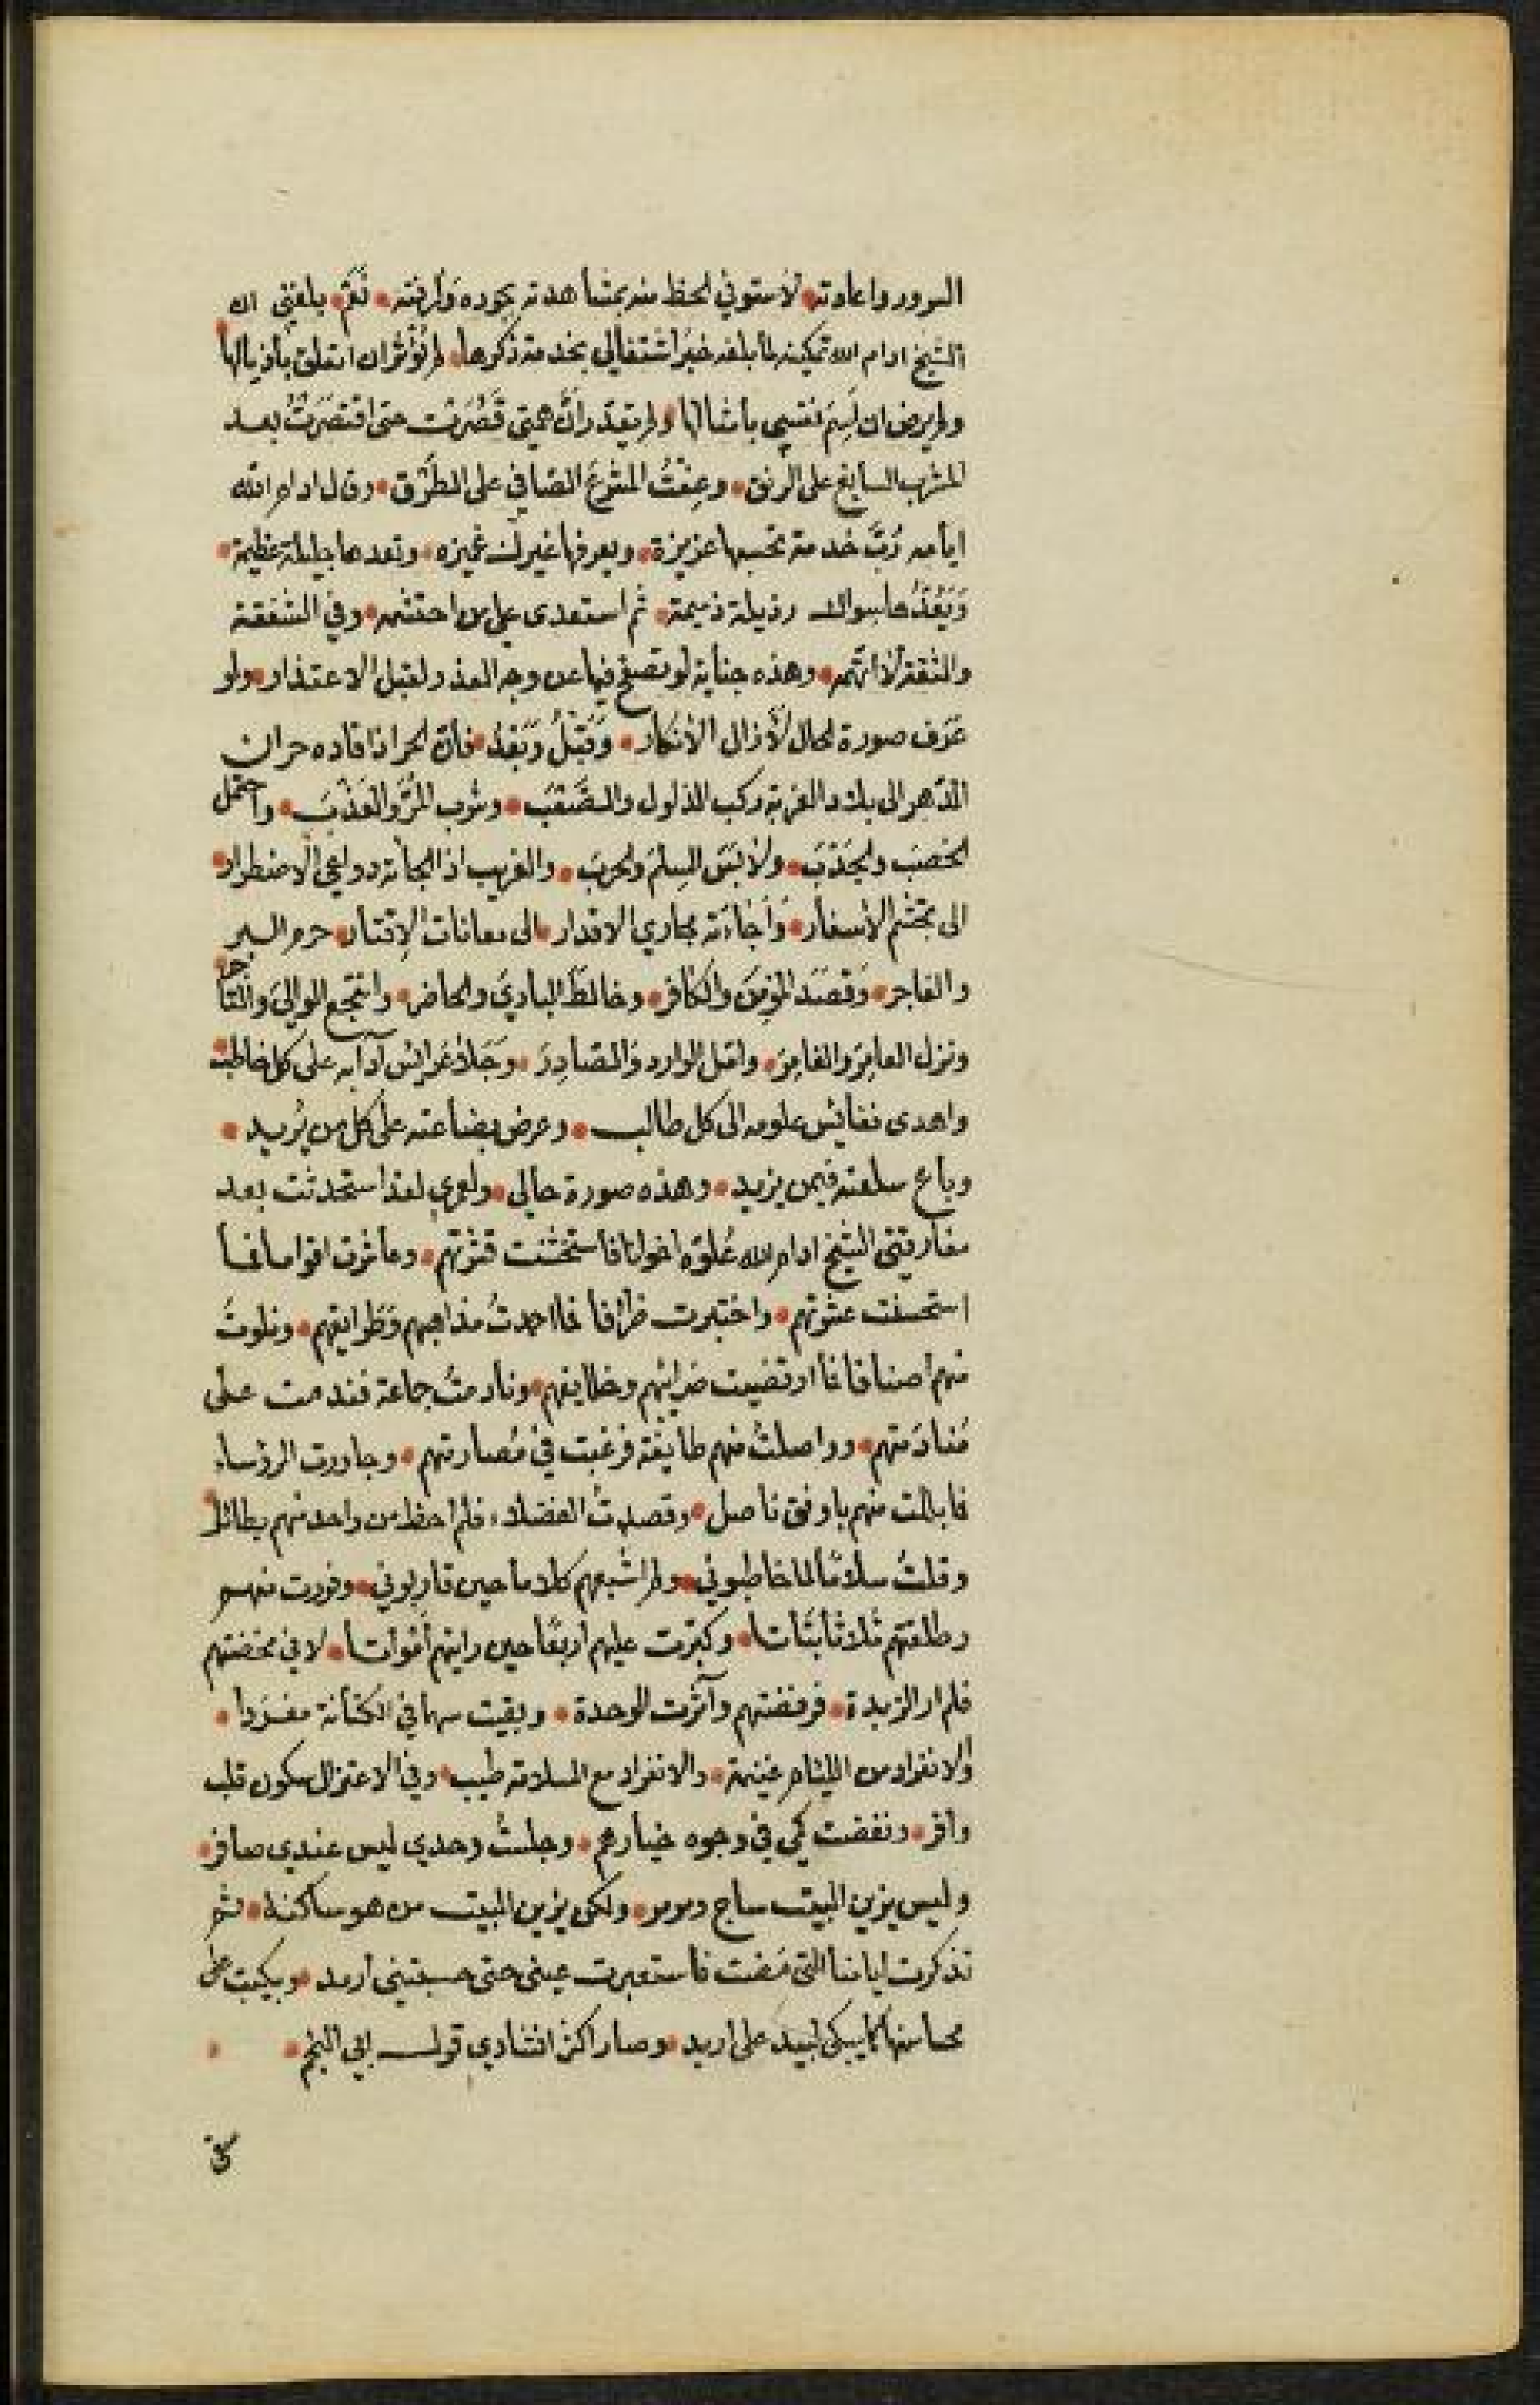 السرور واعادته • لأستوفي الحظ منه بمشاهدته بجوده ورأفته • نَعَم • بلغني ان
الشيخ ادام الله تمكينه لما بلغه خبرُ اشتغالي بخدمة ذكرها • لم يُؤثر ان اتعلق بأذيالها •
ولم يرض ان اَسِمَ نفسي بأمثالها • ولم يقدّر انَّ همتي قَصُرَت حتى اقتصَرَتْ بعد
المشرب السايغ على الرنق • وعِفْتُ المشرعَ الصافي على الطَّرْق • وقال ادام الله
ايامه رُبَّ خدمة تحسبها عزيزة • ويعرفها غيرك غميزه • وتعدها جليلة عظيمة •
وَيَعُدُّها سواك رذيلة ذميمة • ثم استعدى علي من احتشمه • وفي الشفقة
والثقة لا اتهمه • وهذه جناية لو تصفح فيها عن وجه العذر لقبل الاعتذار • ولو
عَرَف صورة الحال لأزال الأنكار • وَقَبْلُ وَبَعْدُ • فأن الحر اذا قاده حران
الدهر الى بلاد الغربة ركب الذلول والصَّعْبَ • وشرب المُرَّ والعَذْبَ • واحتمل
الخصبَ والجَدْبَ • ولابَسَ السِلمَ والحربَ • والغريب اذا الجأته دواعي الاضطرار •
الى تجشم الأسفار • وَاَجَاءَته مجاري الاقدار • الى معانات الإقتار • خدم البر
والفاجر • وَقصَدَ المؤمنَ والكافر • وخالطَ الباديَ والحاضر • وانتجع الواليَ والتاجر •
ونزل العامِرَ والغامِرَ • وامّل الوارد وَالصادِرَ • وَجَلا عَرائس آدابه على كل خاطب •
واهدى نفائس علومه الى كل طالب • وعرض بضاعته على كل من يُريد •
وباع سلعته فيمن يزيد • وهذه صورة حالي • ولعمري لقد استحدثت بعد
مفارقتي الشيخ ادام الله عُلوَّه اخوانا فاستخشنت قشرتهم • وعاشرت اقواما فما
استحسنت عشرتهم • واختبرت ظرافا فما احمدتُ مذاهبهم وَطرائقهم • وبلوتُ
منهم اصنافا فما ارتضيت ضرائبهم وخلايقهم • ونادمتُ جماعة فندمت على
مُنادَمتهم • وواصلتُ منهم طايفة فرغبت في مُصارمتهم • وجاورت الرؤساء
فابللت منهم باوفق ناصل • وقصدتُ الفضلاء فلم احظ من واحد منهم بطائل •
وقلتُ سلامًا لما خاطبوني • ولم اشبعهم كلاما حين قاربوني • وفررت منهم
وطلقتهم ثلاثا بَتاتا • وكبّرت عليهم اربعًا حين رايتهم أمواتا • لاني مخضتهم
فلم ار الزبدة • فرفضتهم وآثرت الوحدة • وبقيت سهما في الكنانة مفرَدا •
والانفراد من اللئام غنيمة • والانفراد مع السلامة طيب • وفي الاعتزال سكون قلب
وافر • ونفضت كمي في وجوه خيارهم • وجلستُ وحدي ليس عندي صافر •
وليس يزين البيت ساج ومرمر • ولكن يزين البيت من هو ساكنه • ثم
تذكرت ايامنا التي مَضت فاستعبرت عيني حتى حسبتني أرمد • وبكيت على
محاسنها كما يبكي لبيد على اربد • وصار اكثر انشادي قول ابي النجم •